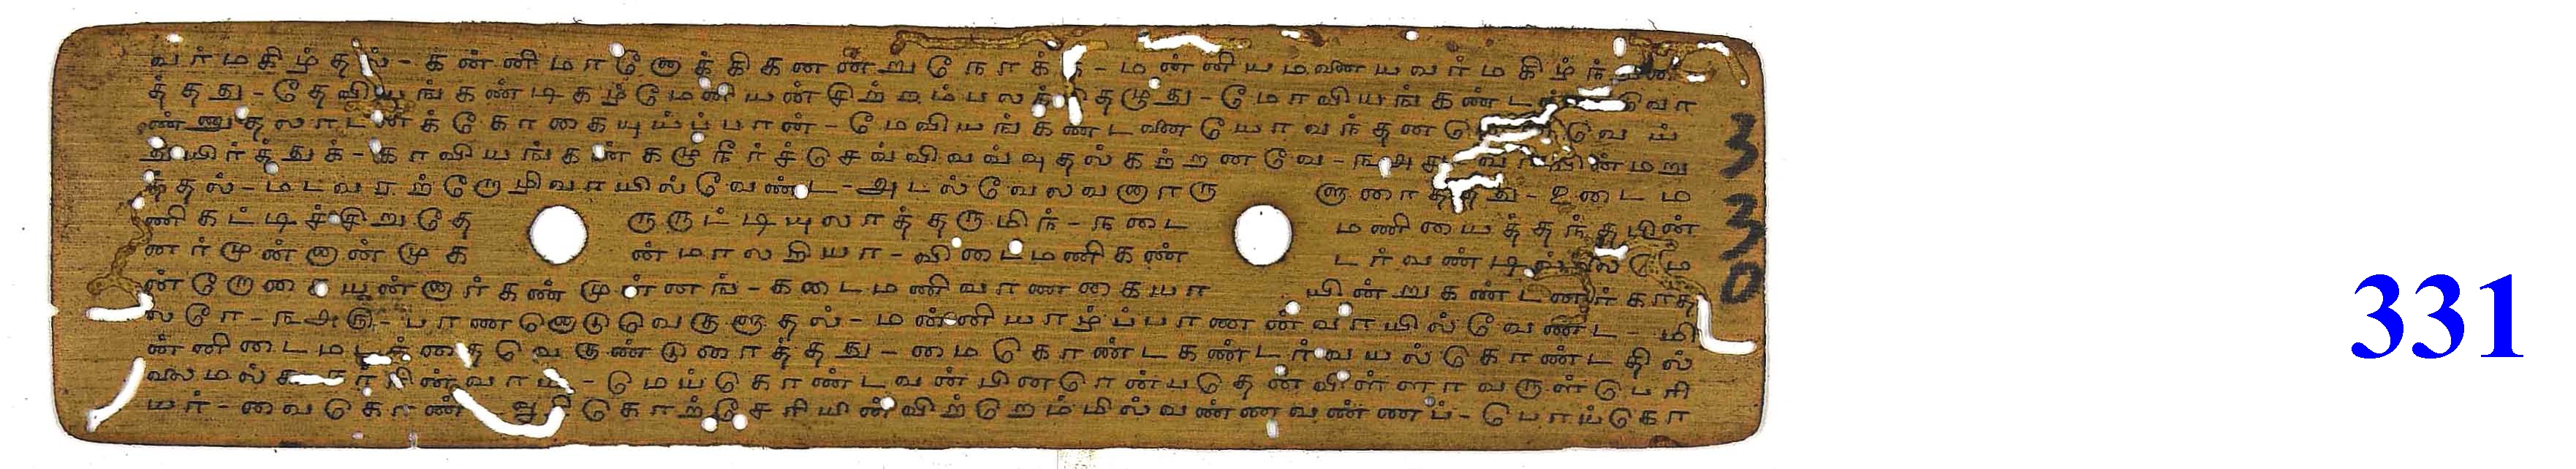 வர்மகிழ்தல் - கன்னிமானோக்கிகனன்றுநோக்கத் - மன்னியமனையவர்மகிழ்ந்
த்தது - தேவியங்கண்டிகழ்மேனியன்சிற்றம்பலத் தெழுது - மோவியங்கண்ட வொ
ண்ணுதலாடனக்கோகையுய்ப்பான் - மேவியங்கண்டனையோவந்தன வெய்
துயிர்த்துக் - காவியங்கண்கழுநீர்ச்செவ்விவவ்வுதல்கற்றனவே - ௩௬௫ வாயின்மறு
த்தல் - மடவரற்றோழிவாயில்வேண்ட - அடல்வேலவனாரு ளுரைத்தது - உடைம
ணிகட்டிச்சிறுதே ருருட்டியுலாத்தருமிந் - நடை மணியைத்தந்தபின்
னர்முன்னான்முக ன்மாலறியா - விடைமணிகண் டர்வண்டில்லை மெ
ன்றோகையன்னார்கண்முன்னங் - கடைமணிவாணகையா யின்றுகண்டனர்காத
லரே - ௩௬௬ - பாணனொடுவெகுளுதல் - மன்னியாழ்ப்பாணன்வாயில்வேண்ட - மி
ன்னிடைமடந்தைவெகுண்டுரைத்தது - மைகொண்டகண்டர்வயல்கொண்டதில்
லைமல்கூரர்நின்வாய் - மெய்கொண்டவன்பினரென்பதென்விள்ளாவருள்பெரி
யர் - வைகொண் ஊசிகொற்சேரியின்விற்றெம்மில்வண்ணவண்ணப் - பொய்கொ
330
331